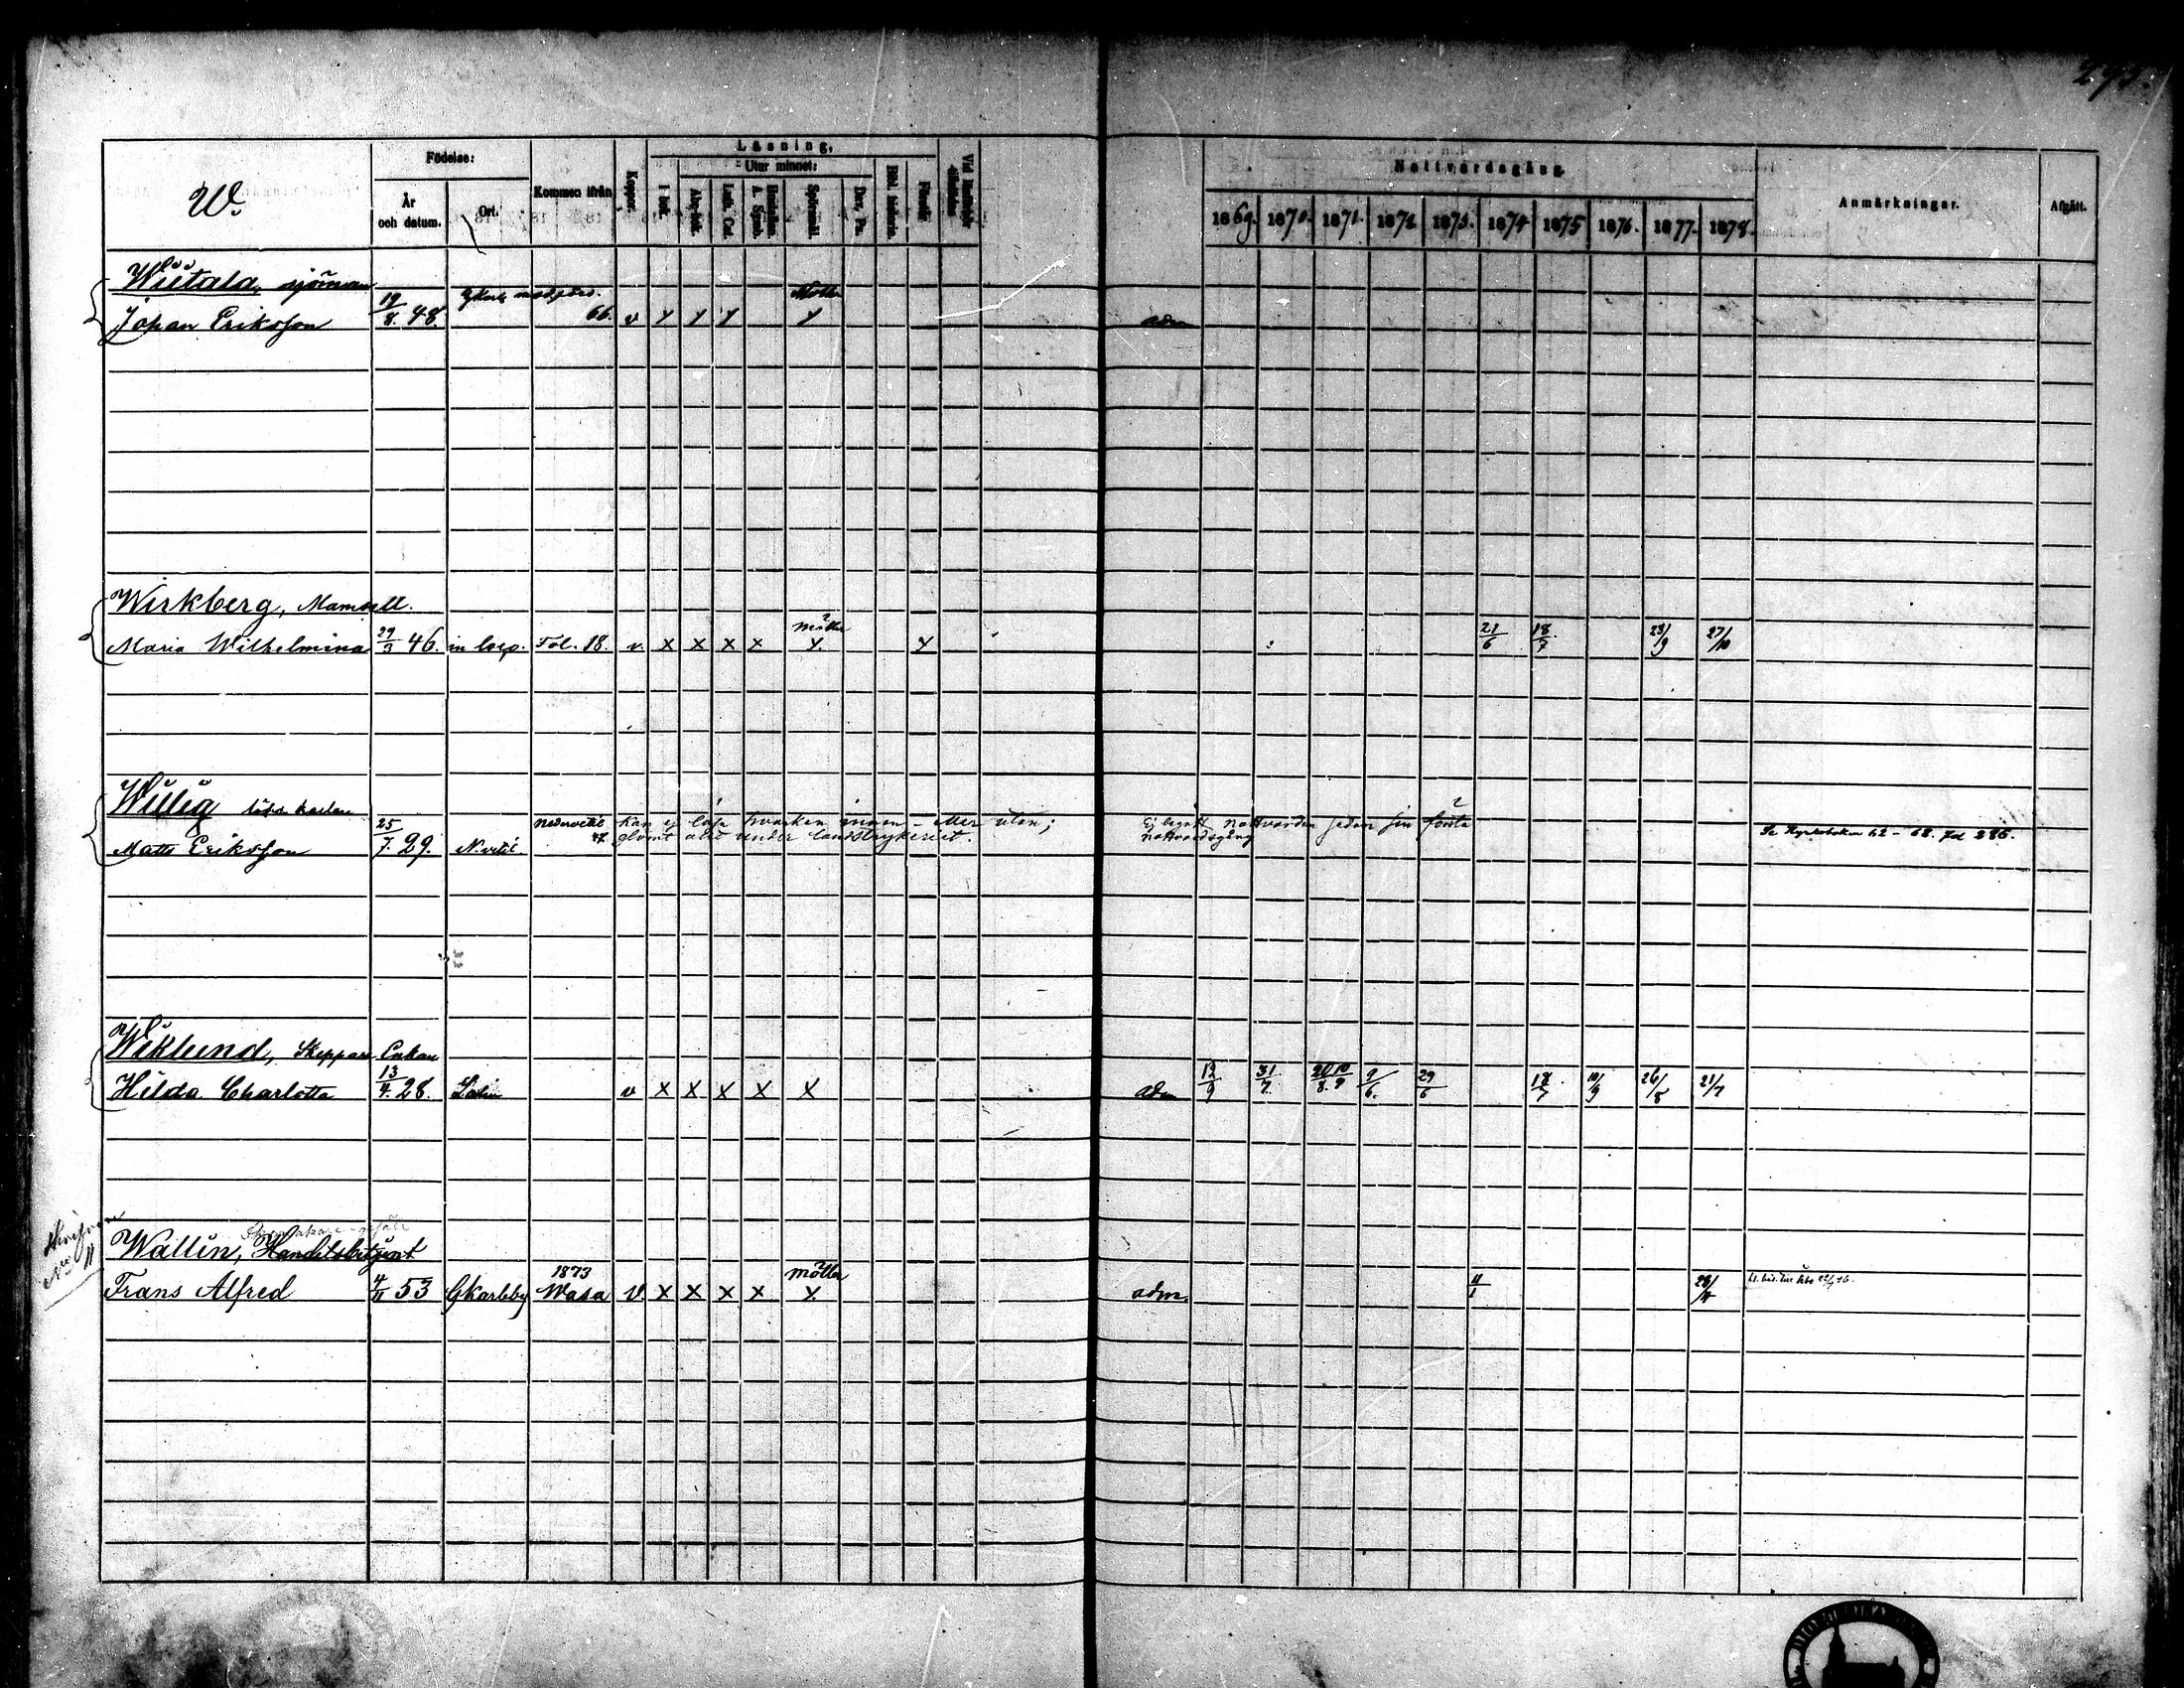 293.
W.
Födelse:
År och datum.
Ort.
Kommen ifrån
Koppor.
Läsning.
I bok.
Utur minnet:
Abc-bok.
Luth. Cat.
Hustaflan A. Symb.
Spörsmål.
Dav. Ps.
Bibl. historia.
Förstår
Vid läseförhör tillstädes
Nattvardsgång.
1869. 1870. 1871. 1872. 1873. 1874 1875 1876. 1877. 1878.
Anmärkningar.
Afgått.
Wiitala, sjöman
Johan Eriksson 19/8. 48. 66. v Y Y Y Möller Y adm
Wirkberg, Mamsell.
Maria Wilhelmina 29/3 46. in loco. Fol. 18. v. X X X X Möller Y. Y 21/6 18/7 23/9 27/10
Wiilig lösa karlen
Matts Eriksson 25/7. 29. N. vetil Nedervetil 47
kan ej läsa hvarken innan- eller utan;
glömt allt under landstrykeriet.
Ej begått nattvarden sedan sin första
nattvardsgång
Se Kyrkoboken 62-68. fol 286.
Wiklund, Skeppare Enkan
Hilda Charlotta 13/4. 28. v X X X X X adm 12/9 31/7. 20/8. 10/9 9/6. 29/6 18/7 10/9 26/8 21/7
No 11
Wallin, Handelsbetjent
Frans Alfred 4/11 53 Gkarleby 1873 Wasa v. X X X X Möller Y. adm. 11/1 23/4